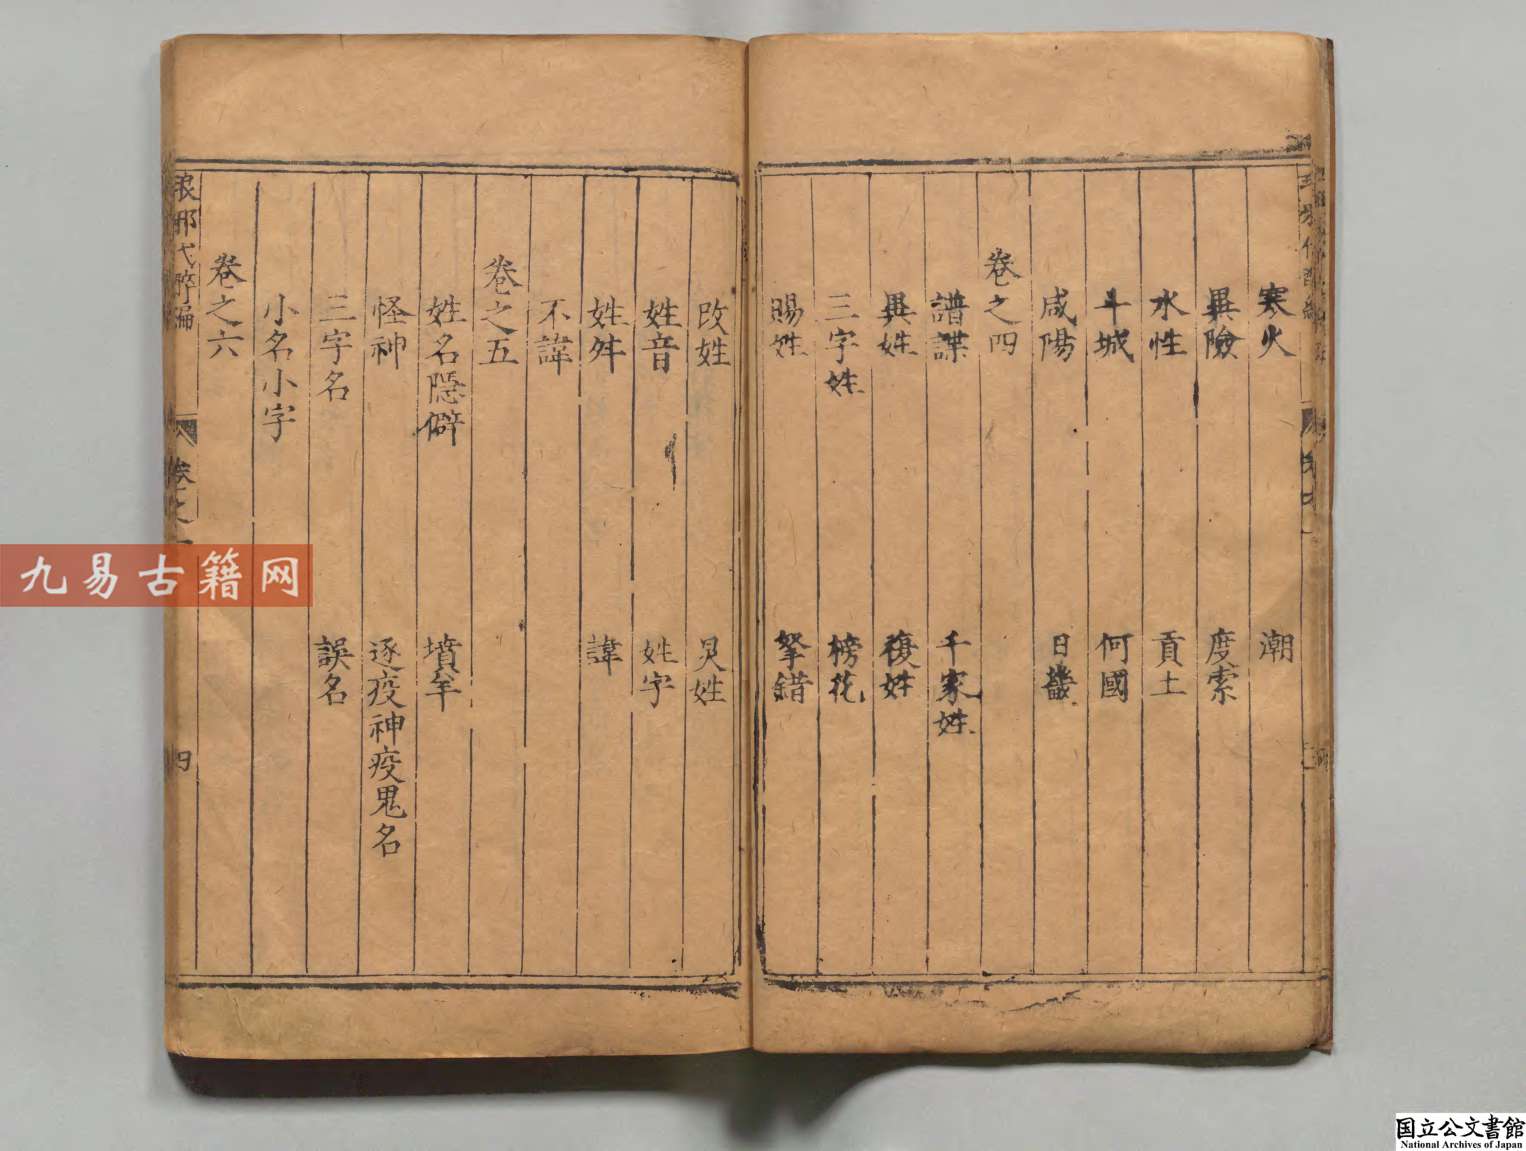 寒火 潮
異險 度索
水性 貢土
斗城 何國
咸陽 日畿
卷之四
譜諜 千家姓
異姓 復姓
三字姓 榜花
賜姓 拏錯
改姓 炅姓
姓音 姓字
姓舛 諱
不諱
卷之五
姓名隱僻 墳羊
怪神 逐疫神疫鬼名
三字名 誤名
小名小字
卷之六
琅邪代醉編 卷之 四
九易古籍网
国立公文書館
National Archives of Japan